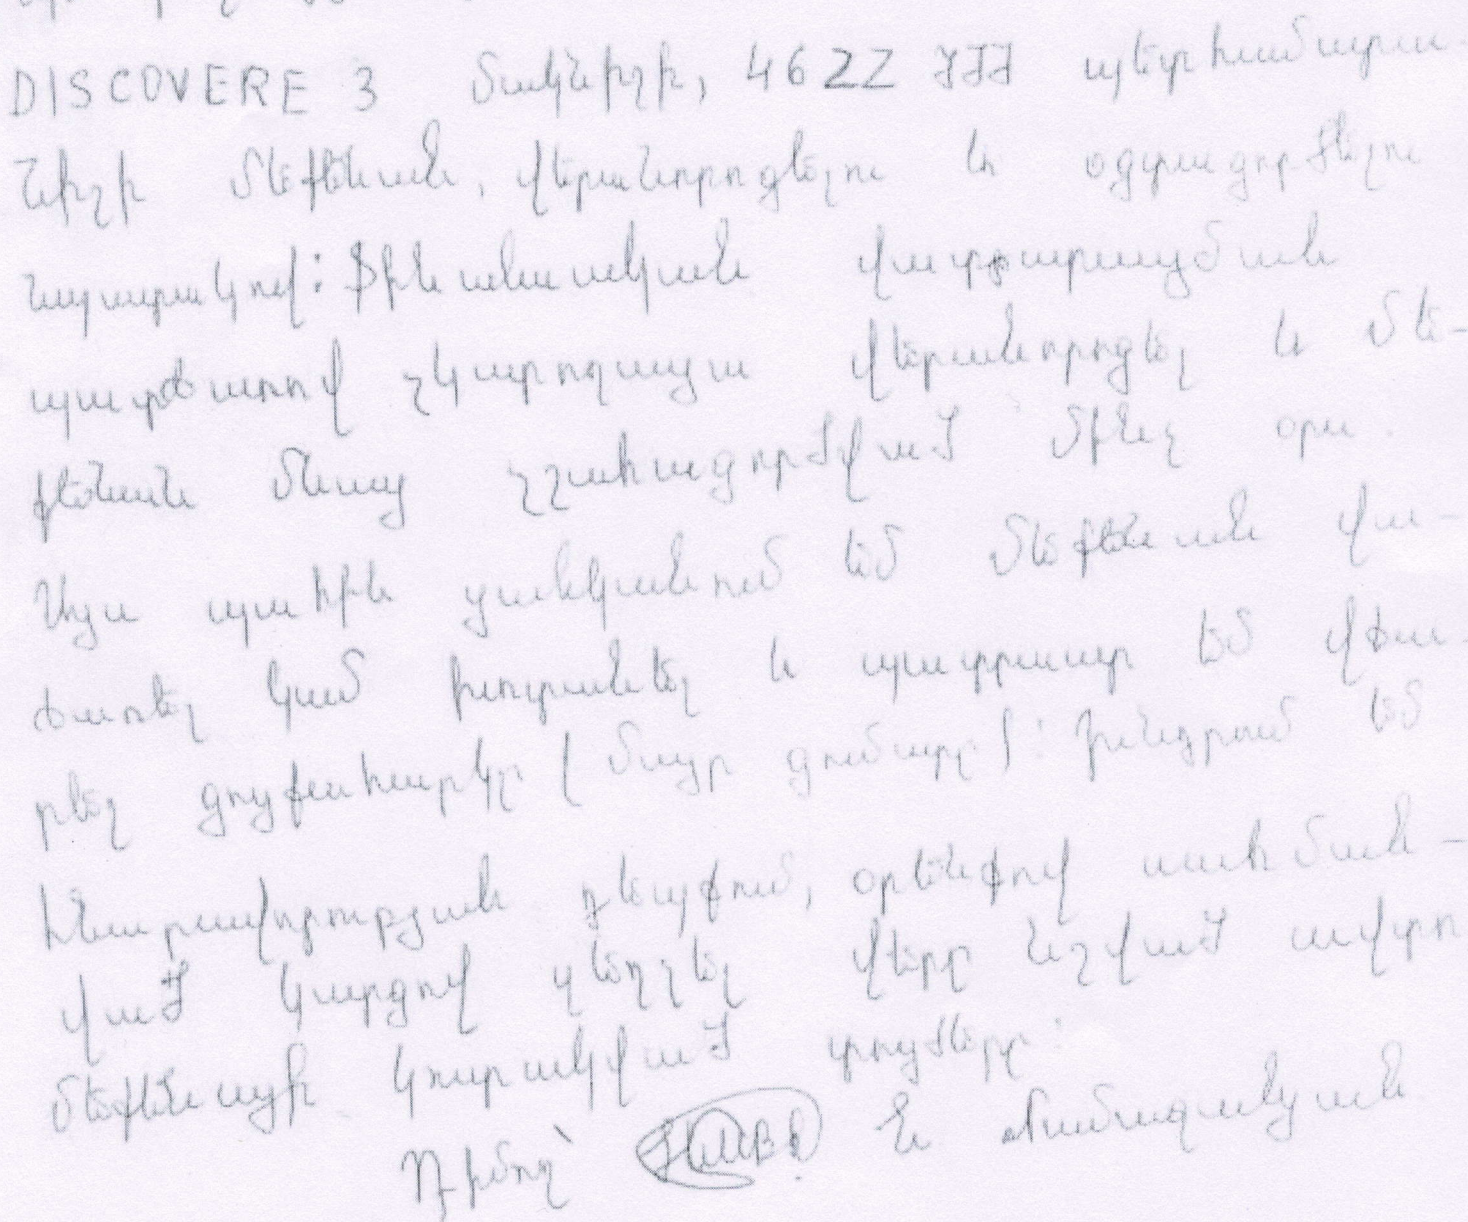 DISCOVERE 3 մակնիշի, 4622 JJJ պետհամարա-
նիշի մեքենան, վերանորոգելու և օգտագործելու
նպատակով: Ֆինանսական վատթարացման
պատճառով չկարողացա վերանորոգել և մե-
քենան մնաց չշահագործված մինչ օրս.
Այս պահին ցանկանում եմ մեքենան վա-
ճառել կամ խոտանել և պատրաստ եմ վճա-
րել գույքահարկը (մայր գումարը): Խնդրում եմ
հնարավորության դեպքում, օրենքով սահման-
ված կարգով զեղչել վերը նշված ավտո
մեքենայի կուտակված տույժերը:
Դիմող՝ Ն